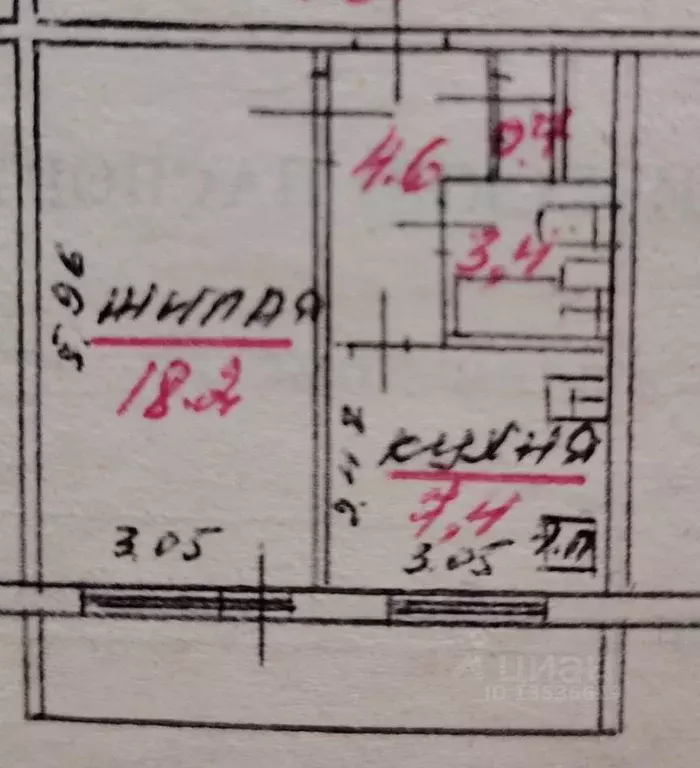 0.4
4.6
3,4
5.96
жилая
18.2
2.42
кухня
7,4
3.05
3.05
г.п
циан